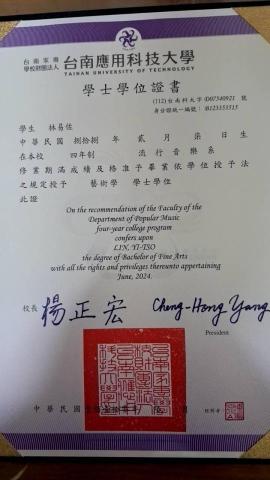 台南家專
學校財團法人
台南應用科技大學
TAINAN UNIVERSITY OF TECHNOLOGY
學士學位證書
(112)台南科大字 D07540921 號
身分證統一編號: B123353315
學生 林易佐
中華民國 捌拾捌 年 貳 月 柒 日生
在本校 四年制 流行音樂系
修業期滿成績及格准予畢業依學位授予法
之規定授予 藝術學 學士學位
此證
On the recommendation of the Faculty of the
Department of Popular Music
four-year college program
confers upon
LIN, YI-TSO
the degree of Bachelor of Fine Arts
with all the rights and privileges thereunto appertaining
June, 2024.
校長 楊正宏 Cheng-Hong Yang
President
中華民國
月
校對者